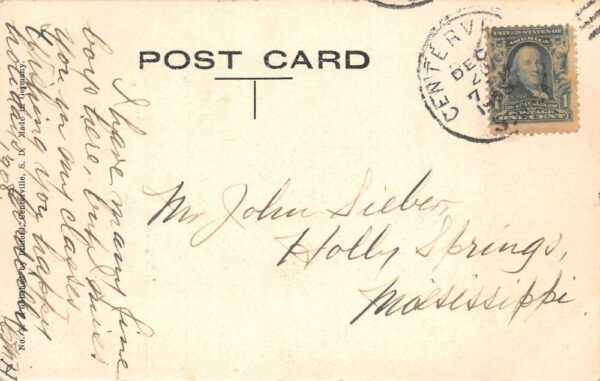 POST CARD
CENTERVI
DEC
7
UNITED STATES OF
AMERICA
1
POSTAGE
ONE CENT
Mr John Sieber,
Holly Springs,
Mississippi
I have many fine
boys here, but I miss
you in my classes
Wishing you happy
holidays
No. Centerville, S. D. Made in Germany.